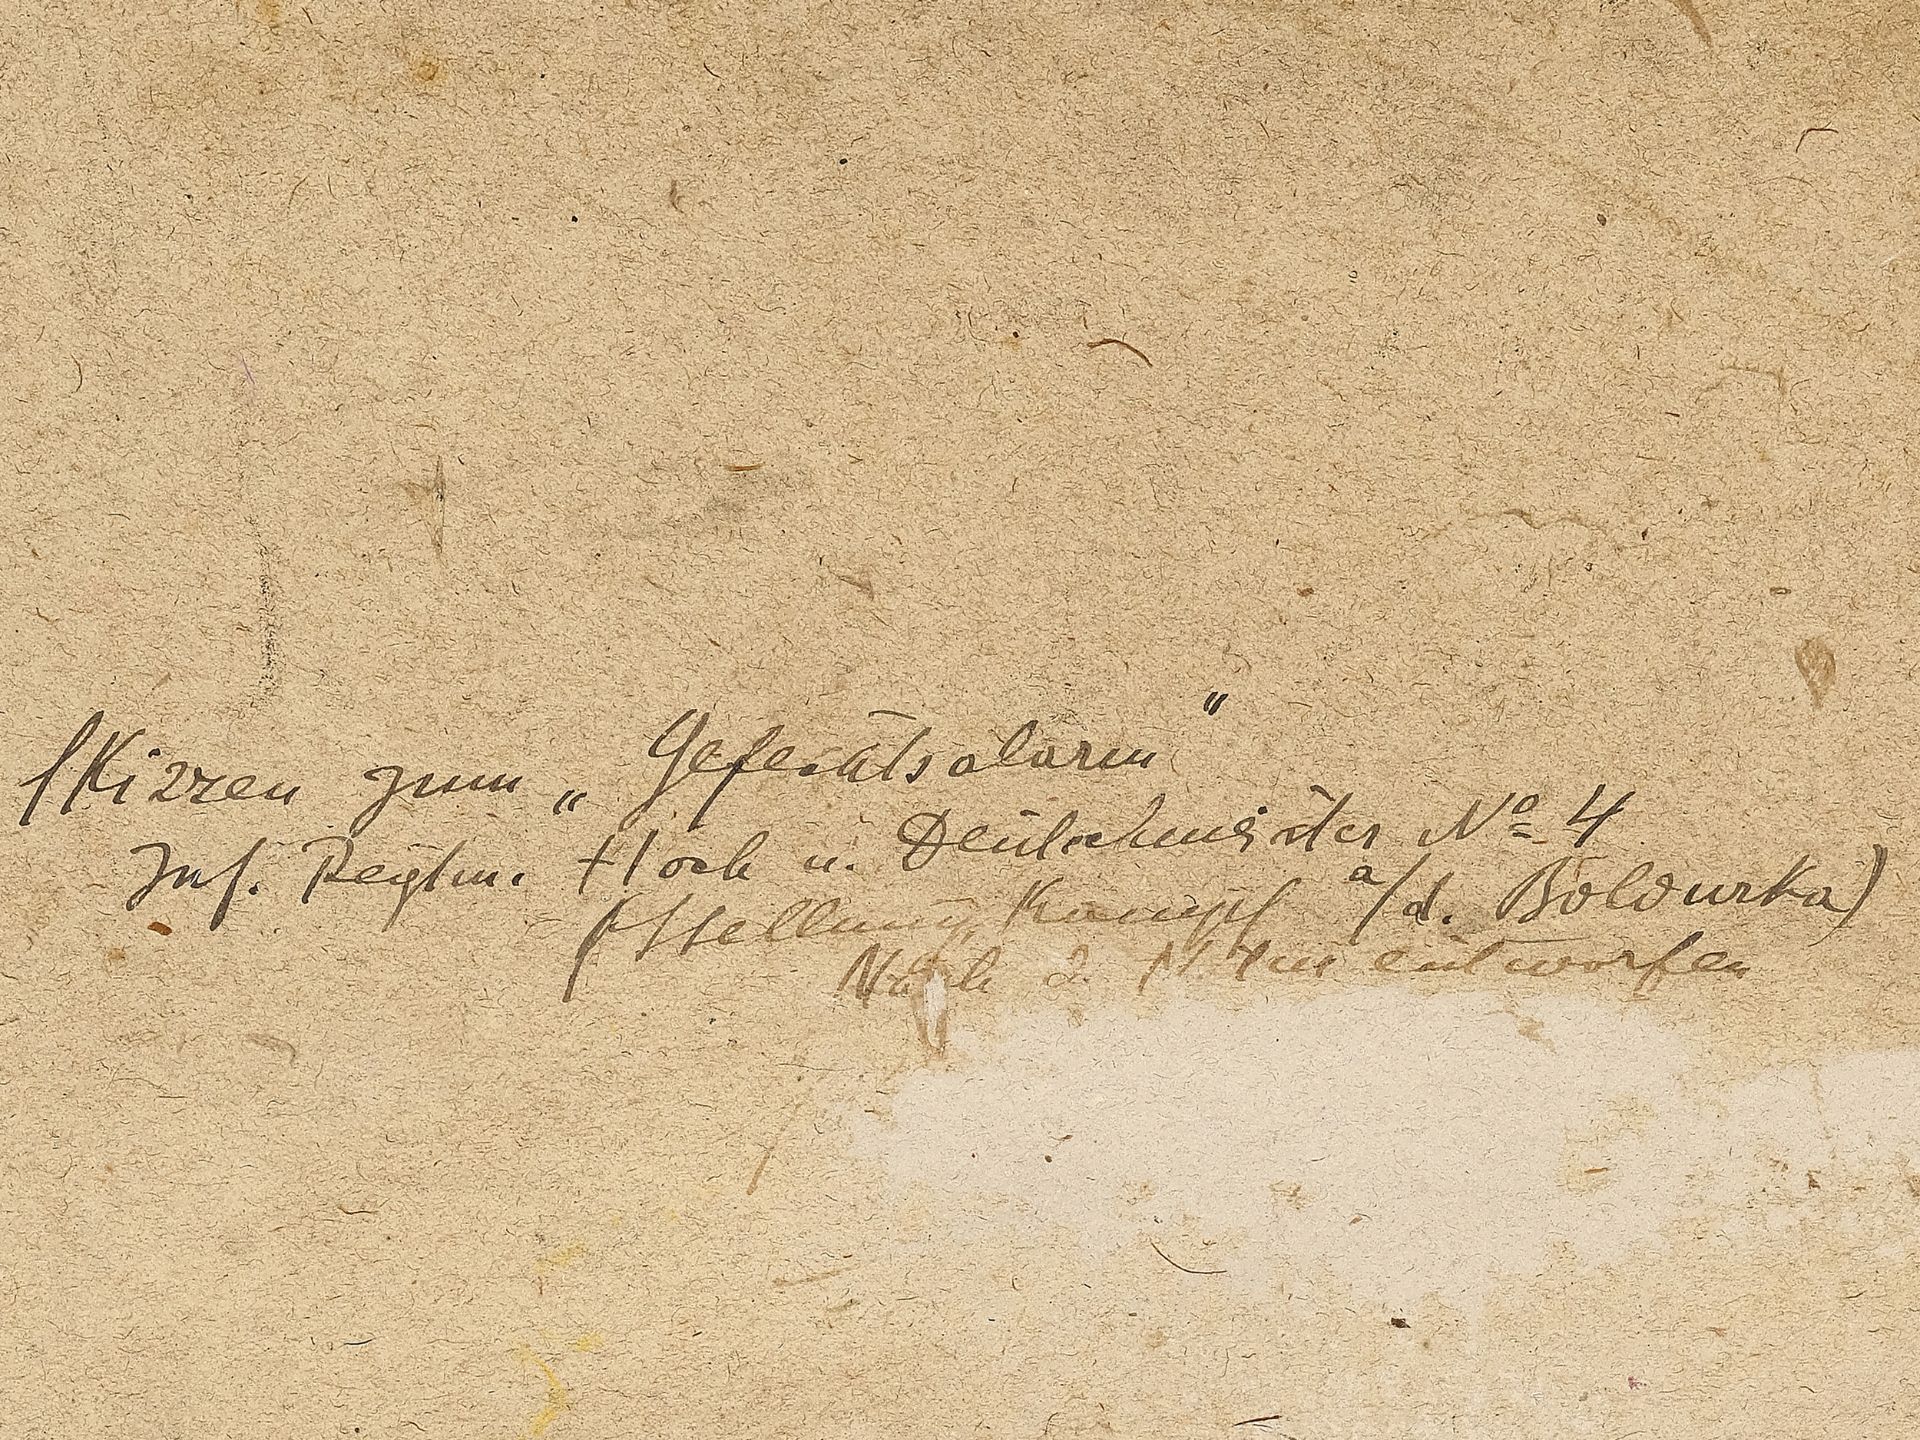 Skizzen zum „Gefechtsalarm"
Inf. Regtm. Hoch u. Deutschmeister No 4
(Stellungskampf a/d. Boldurka)
Nach d. entworfen